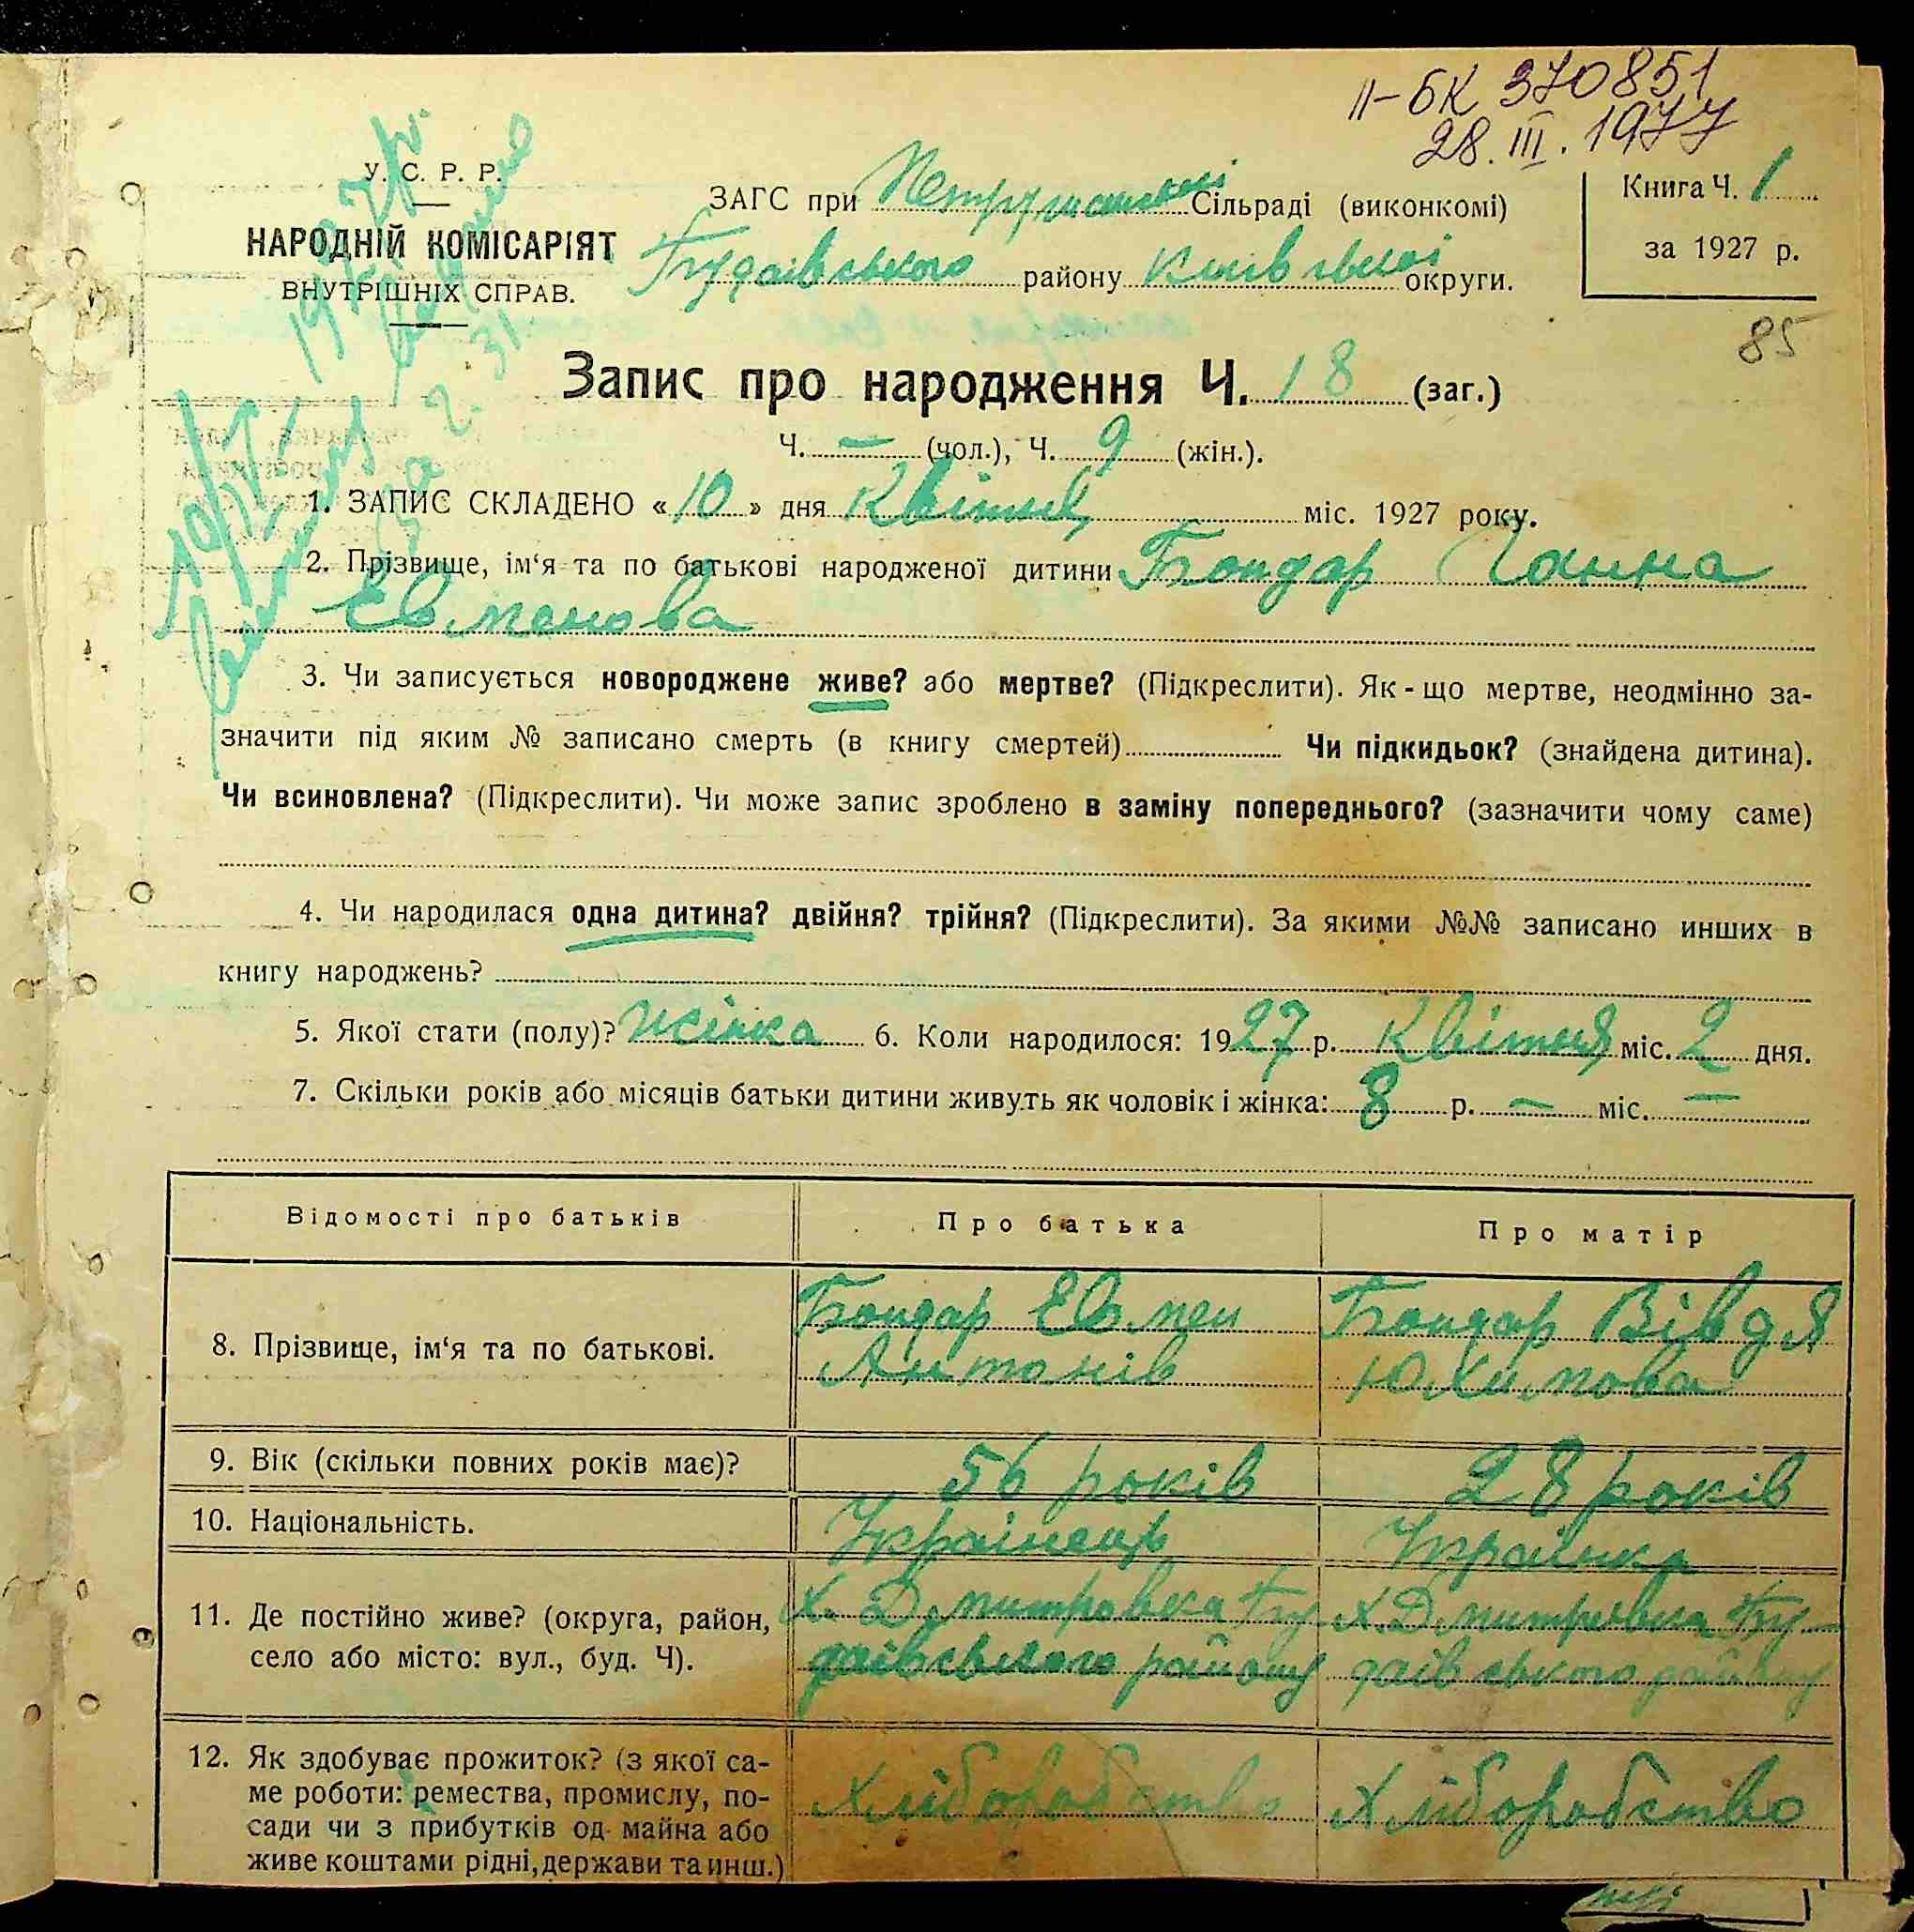 ІІ-БК 370851
28.III.1977
У. С. Р. Р.
НАРОДНІЙ КОМІСАРІЯТ
ВНУТРІШНІХ СПРАВ.
ЗАГС при Сільраді (виконкомі)
Будаівського району Київської округи.
Книга Ч. 1
за 1927 р.
85
Запис про народження Ч. 18 (заг.)
Ч. — (чол.), Ч. 9 (жін.).
1. ЗАПИС СКЛАДЕНО «10» дня Квітня міс. 1927 року.
2. Прізвище, ім‘я та по батькові народженої дитини Бондар Ганна
Евменова
3. Чи записується новороджене живе? або мертве? (Підкреслити). Як-що мертве, неодмінно за-
значити під яким № записано смерть (в книгу смертей) Чи підкидьок? (знайдена дитина).
Чи всиновлена? (Підкреслити). Чи може запис зроблено в заміну попереднього? (зазначити чому саме)
4. Чи народилася одна дитина? двійня? трійня? (Підкреслити). За якими №№ записано инших в
книгу народжень?
5. Якої стати (полу)? Жінка 6. Коли народилося: 1927 р. Квітня міс. 2 дня.
7. Скільки років або місяців батьки дитини живуть як чоловік і жінка: 8 р. — міс. —
Відомості про батьків Про батька Про матір
8. Прізвище, ім‘я та по батькові.
Бондар Евмен
Антонів
Бондар Вівдя
Юхимова
9. Вік (скільки повних років має)? 56 років 28 років
10. Національність. Украінець Украінка
11. Де постійно живе? (округа, район,
село або місто: вул., буд. Ч).
Х. Дмитровка Бу
даівського району
Х. Дмитровка Бу-
даівського району
12. Як здобуває прожиток? (з якої са-
ме роботи: ремества, промислу, по-
сади чи з прибутків од майна або
живе коштами рідні, держави та инш.)
Хліборобство
Хліборобство